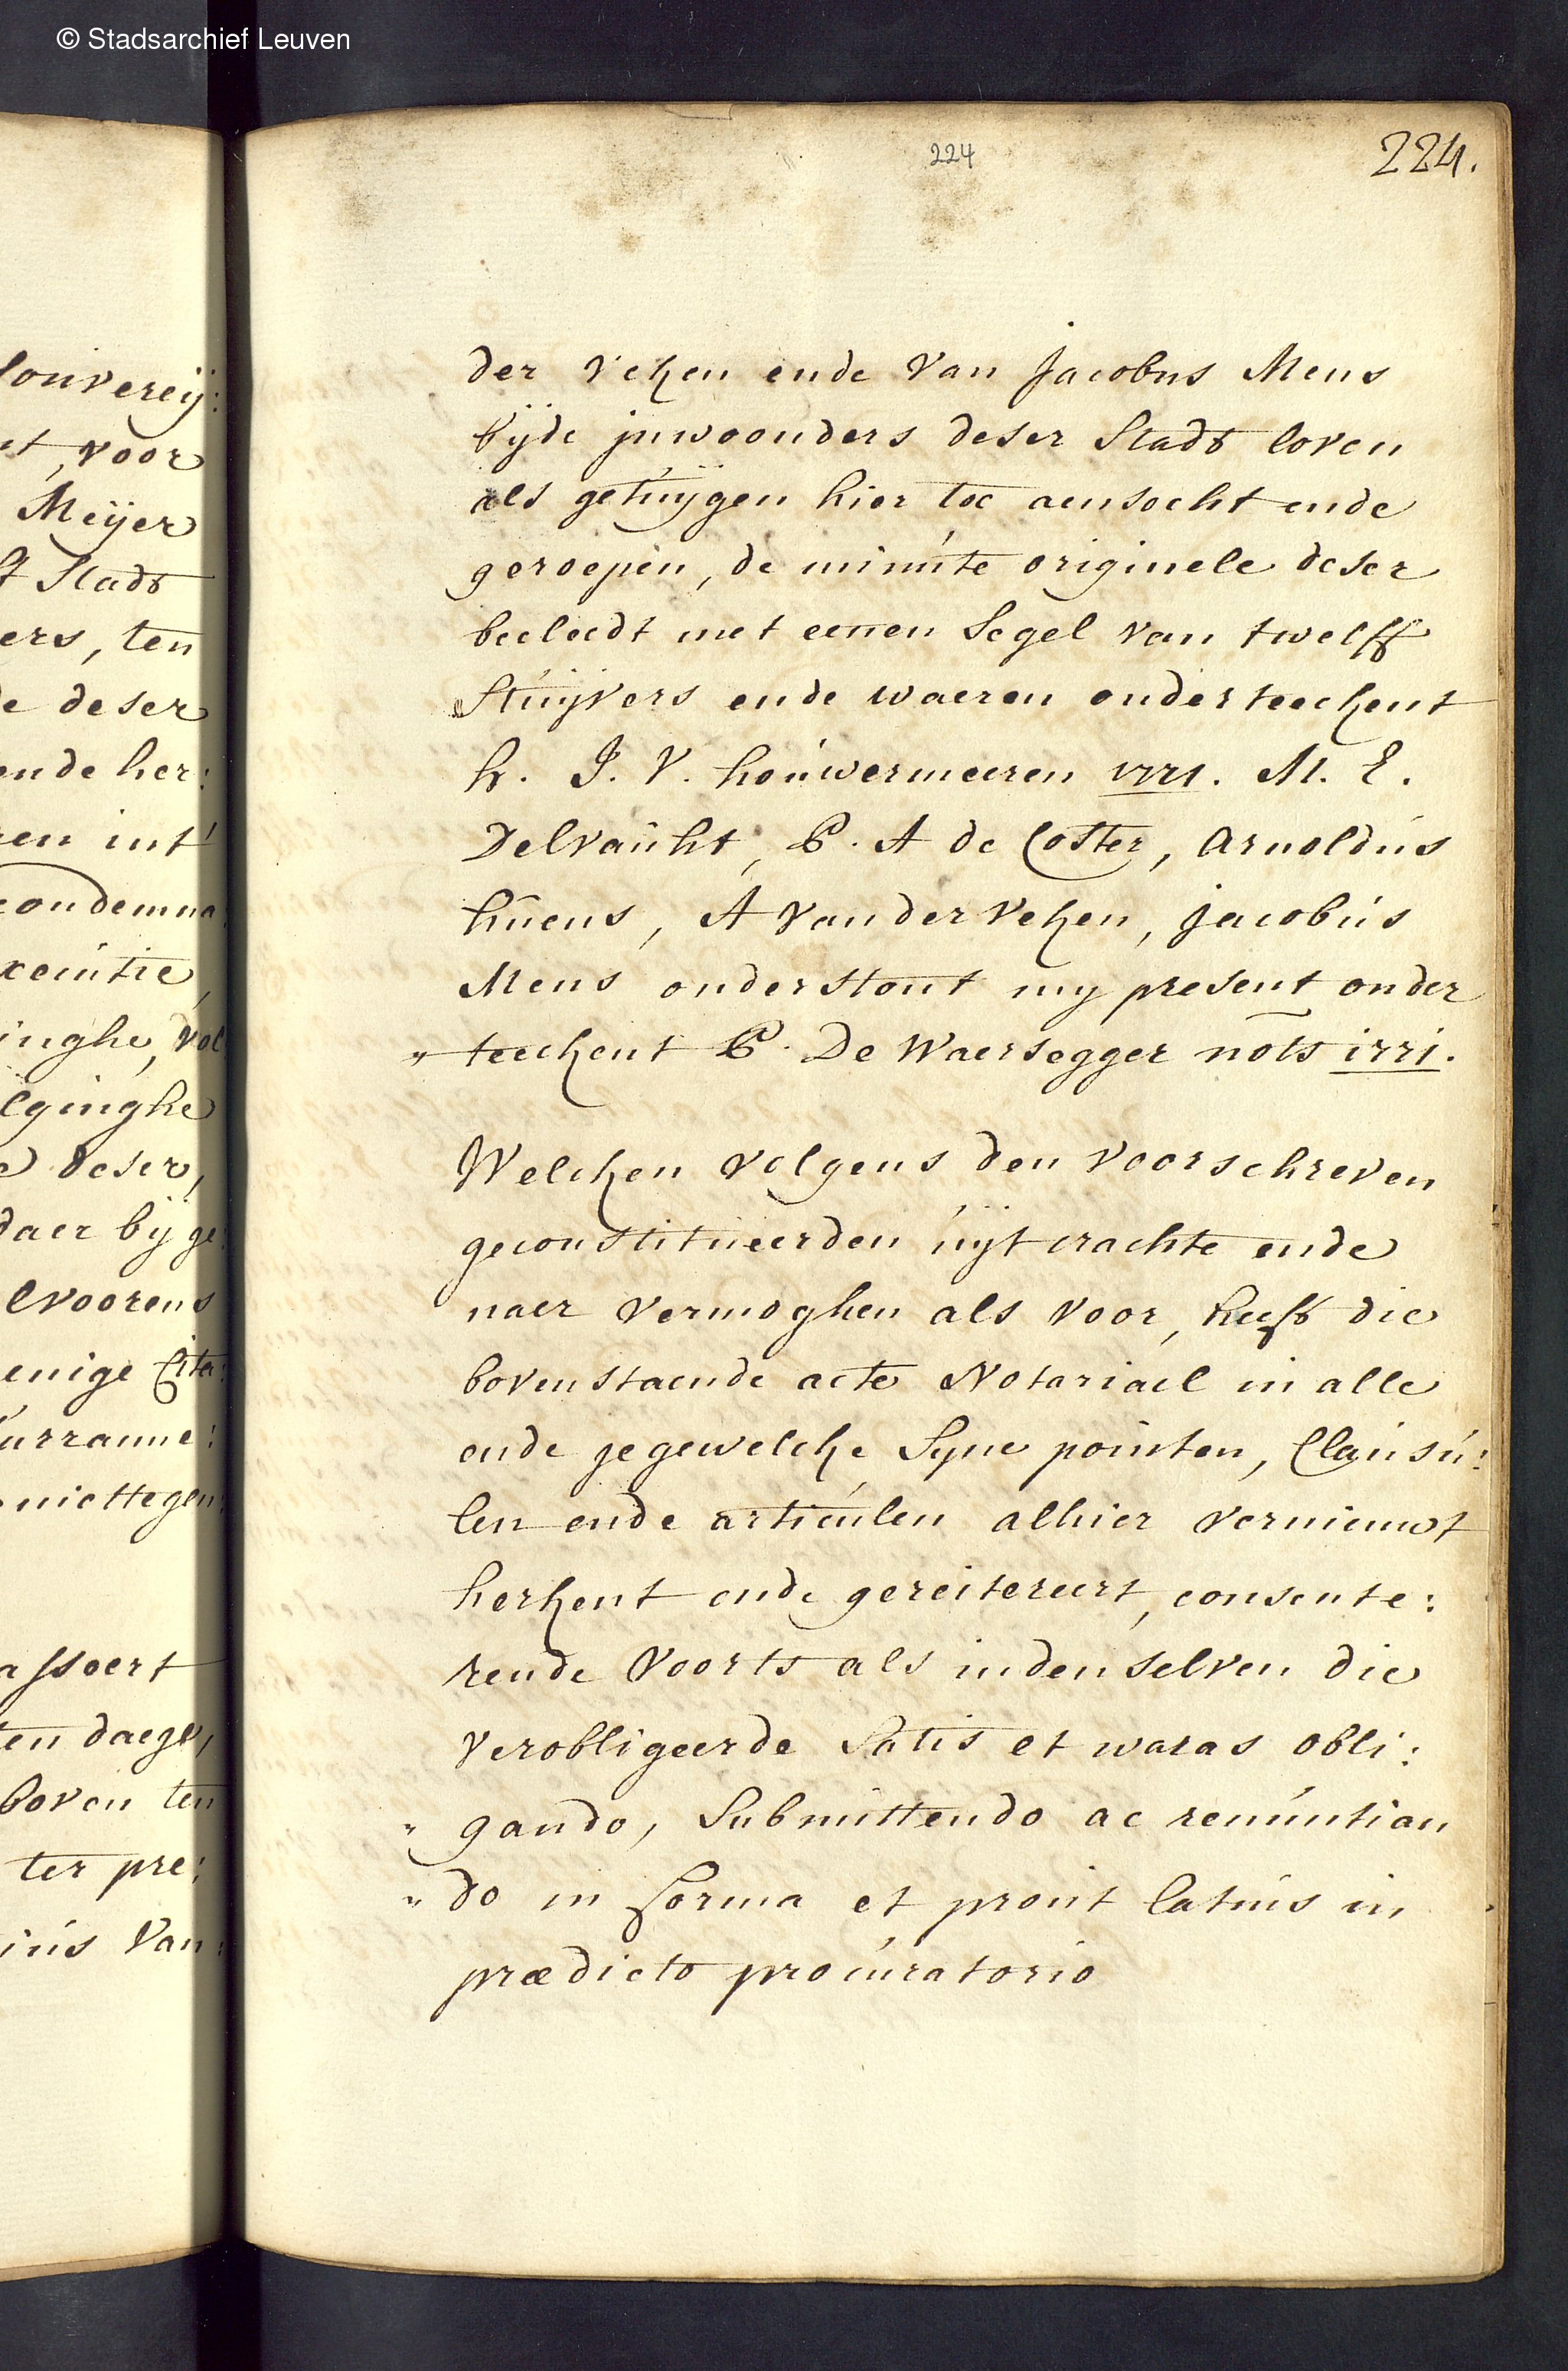 © Stadsarchief Leuven
224
224.
souvereij:
voor
Meijer
Stadt
ers, ten
e deser
ende her:
en int
condemna:
xecutie,
inghe, vol
lginghe
deser,
daer bij ge:
lvoorens
enige Cita:
urranne:
niettegen:
asseert
ten daege,
boven ten
ter pre:
ius Van:
der veken ende van Jacobus Mens
bijde inwoonders deser Stadt loven
als getuijgen hier toe aensocht ende
geroepen, de minute originele deser
becleedt met eenen Segel van twelff
Stuijvers ende waeren onderteeckent
h. J. V. houwermeeren 1771. M. E.
Delvauht, P. A de Coster, Arnoldus
huens, A Vanderveken, jacobus
Mens onderstont my present onder
" teeckent P. De Waersegger nots 1771.
Welcken volgens den voorschreven
geconstitueerden uijt crachte ende
naer vermoghen als voor, heeft die
bovenstaende acte Notariael in alle
ende jegewelcke Syne pointen, Clausu:
len ende articulen alhier vernieuwt
herkent ende gereitereert, consente:
rende voorts als inden selven die
verobligeerde Satis et waras obli:
" gando, Submittendo ac renuntian
" do in forma et prout latius in
prædicto procuratorio